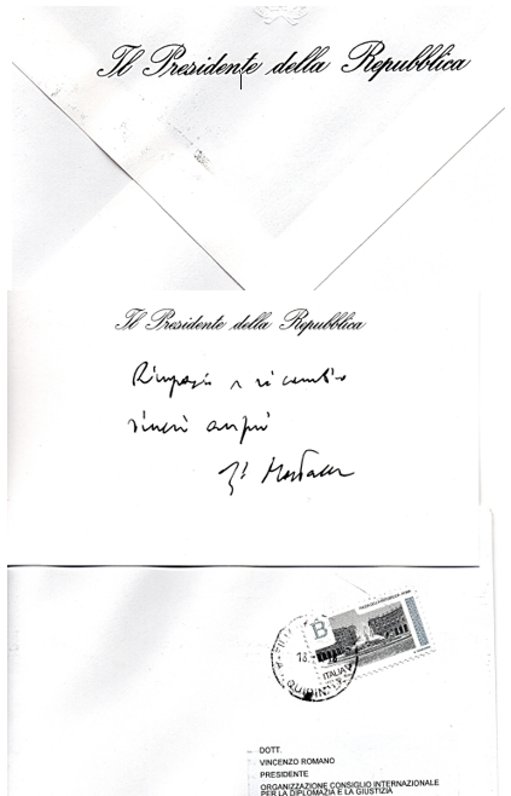 Il Presidente della Repubblica
Il Presidente della Repubblica
Ringrazio e ricambio
sinceri auguri
PIAZZA DELLA REPUBBLICA
B
18.
ITALIA
QUIRINALE
DOTT.
VINCENZO ROMANO
PRESIDENTE
ORGANIZZAZIONE CONSIGLIO INTERNAZIONALE
PER LA DIPLOMAZIA E LA GIUSTIZIA